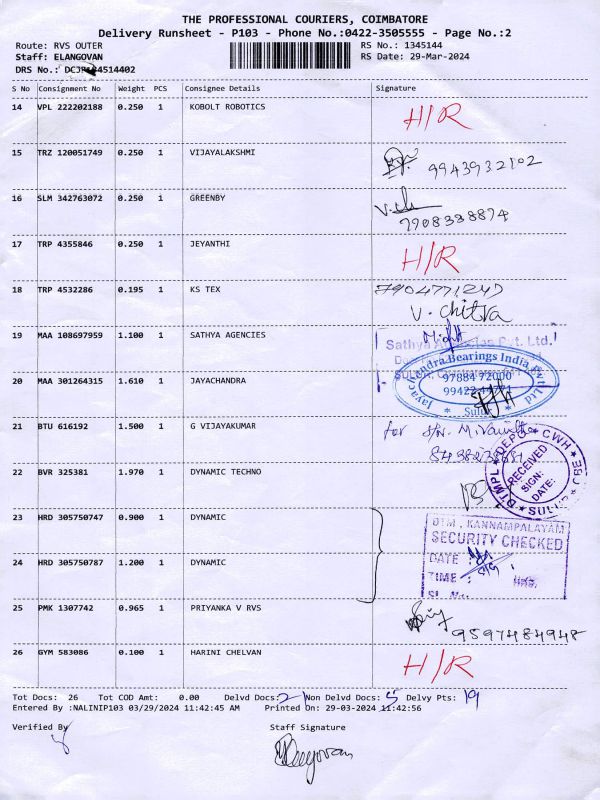 THE PROFESSIONAL COURIERS, COIMBATORE
Delivery Runsheet - P103 - Phone No.:0422-3505555 - Page No.:2
Route: RVS OUTER RS No.: 1345144
Staff: ELANGOVAN RS Date: 29-Mar-2024
DRS No.:
S No Consignment No Weight PCS Consignee Details Signature
14 VPL 222202188 0.250 1 KOBOLT ROBOTICS H/R
15 TRZ 120051749 0.250 1 VIJAYALAKSHMI 9943932102
16 SLM 342763072 0.250 1 GREENBY
7908388874
17 TRP 4355846 0.250 1 JEYANTHI H/R
18 TRP 4532286 0.195 1 KS TEX
V. chitra
19 MAA 108697959 1.100 1 SATHYA AGENCIES
Jayachandra Bearings India Pvt Ltd
20 MAA 301264315 1.610 1 JAYACHANDRA 97884 72000
Sulur
21 BTU 616192 1.500 1 G VIJAYAKUMAR for
22 BVR 325381 1.970 1 DYNAMIC TECHNO
DTMPL DEPO CWH SULUR
RECEIVED
SIGN:
DATE:
23 HRD 305750747 0.900 1 DYNAMIC
DTM, KANNAMPALAYAM
SECURITY CHECKED
24 HRD 305750787 1.200 1 DYNAMIC
DATE
TIME : HRS.
25 PMK 1307742 0.965 1 PRIYANKA V RVS
9597484948
26 GYM 583086 0.100 1 HARINI CHELVAN H/R
Tot Docs: 26 Tot COD Amt: 0.00 Delvd Docs: 21 Non Delvd Docs: 5 Delvy Pts: 19
Entered By :NALINIP103 03/29/2024 11:42:45 AM Printed On: 29-03-2024 11:42:56
Verified By Staff Signature
Elangovan